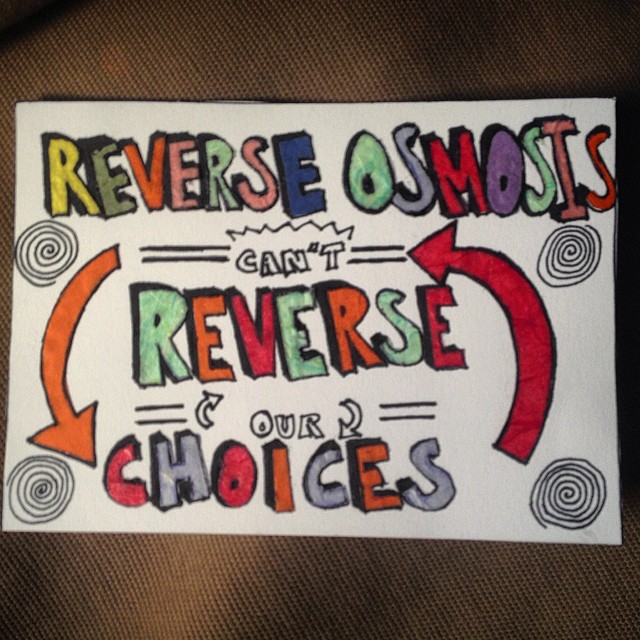 REVERSE OSMOSIS
CAN'T
REVERSE
OUR
CHOICES